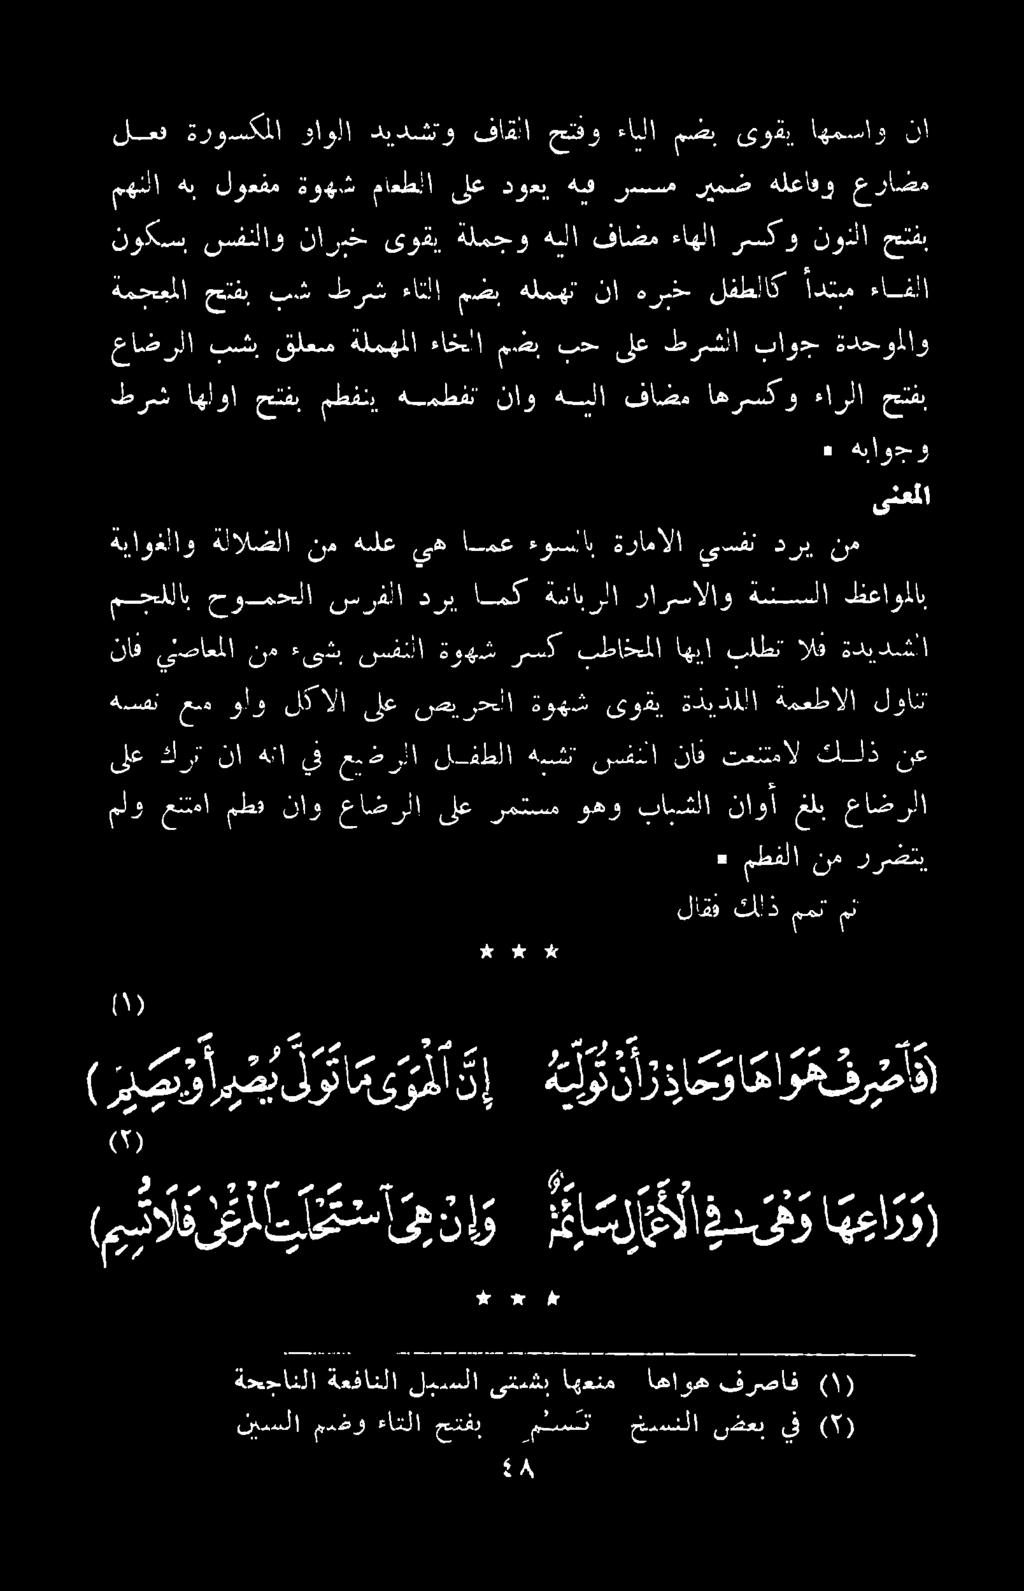 ان واسمها يقوى بضم الياء وفتح القاف وتشديد الواو المكسورة فعـل
مضارع وفاعله ضمير مستتر فيه يعود على الطعام شهوة مفعول به النهم
بفتح النون وكسر الهاء مضاف اليه وجملة يقوى خبران والنفس بسكون
الفـاء مبتدأ كالطفل خبره ان تهمله بضم التاء شرط شب بفتح المعجمة
والموحدة جواب الشرط على حب بضم الحاء المهملة متعلق بشب الرضاع
بفتح الراء وكسرها مضاف اليـه وان تفطمـه ينفطم بفتح اولها شرط
وجوابه ▪
المعنى
من يرد نفسي الامارة بالسوء عمـا هي عليه من الضلالة والغواية
بالمواعظ السـنية والاسرار الربانية كمـا يرد الفرس الجمـوح باللجـم
الشديدة فلا تطلب ايها المخاطب كسر شهوة النفس بشىء من المعاصي فان
تناول الاطعمة اللذيذة يقوى شهوة الحريص على الاكل ولو منع نفسه
عن ذلـك لامتنعت فان النفس تشبه الطفـل الرضيع في انه ان ترك على
الرضاع بلغ أوان الشباب وهو مستمر على الرضاع وان فطم امتنع ولم
يتضرر من الفطم ▪
ثم تمم ذلك فقال
★ ★ ★
(١)
(فَاصْرِفْ هَوَاهَا وَحَاذِرْ أَنْ تُوَلِّيَهُ إِنَّ الْهَوَى مَا تَوَلَّى يُصْمِ أَوْ يَصِمِ)
(٢)
(وَرَاعِهَا وَهْيَ فِي الْأَعْمَالِ سَائِمَةٌ وَإِنْ هِيَ اسْتَحْلَتِ الْمَرْعَى فَلَا تُسِمِ)
★ ★ ★
(١) فاصرف هواها منعها بشتى السبل النافعة الناجحة
(٢) في بعض النسخ تَسُـمِ بفتح التاء وضم السين
٤٨